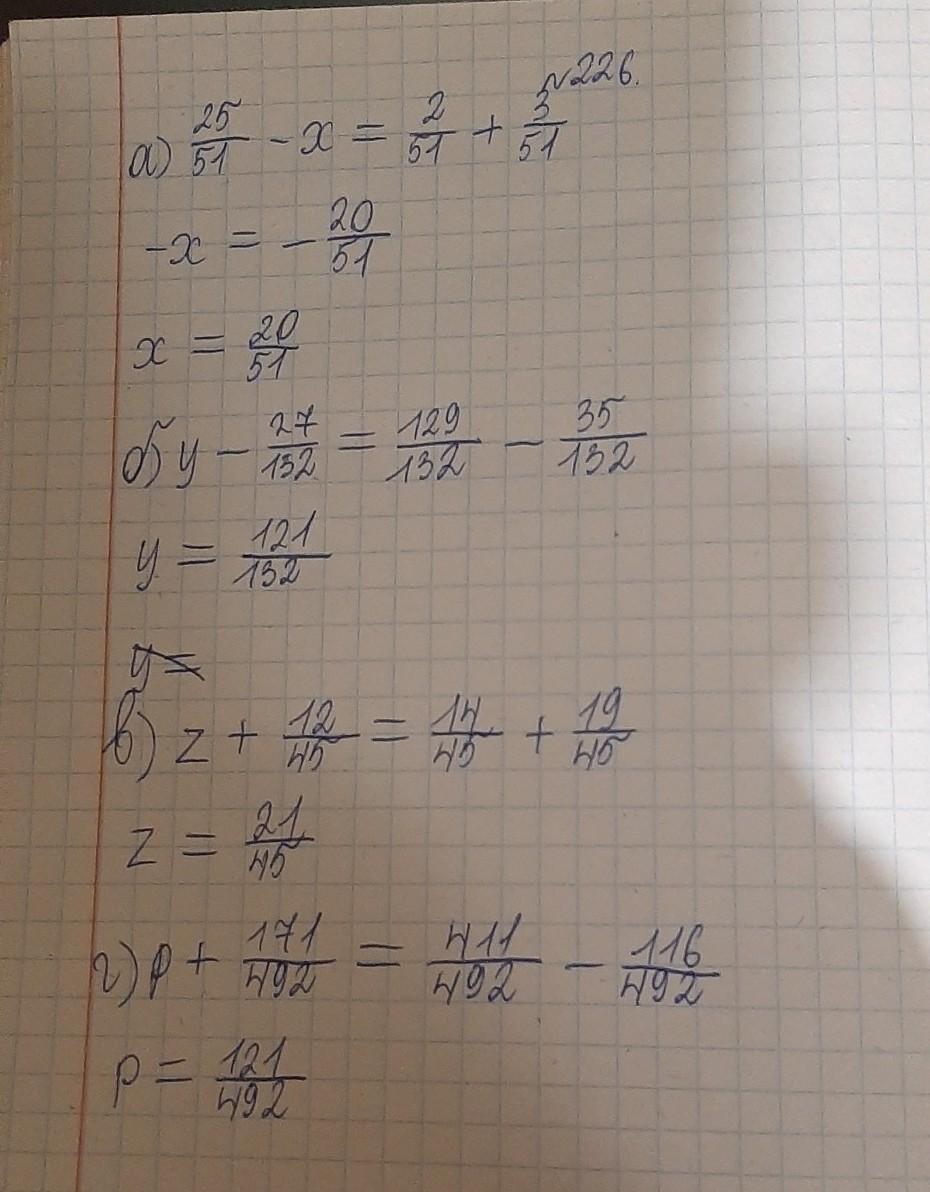 №226.
а) 25/51 - x = 2/51 + 3/51
-x = - 20/51
x = 20/51
б) y - 27/132 = 129/132 - 35/132
y = 121/132
y =
в) z + 12/45 = 14/45 + 19/45
z = 21/45
г) p + 171/492 = 411/492 - 116/492
p = 121/492